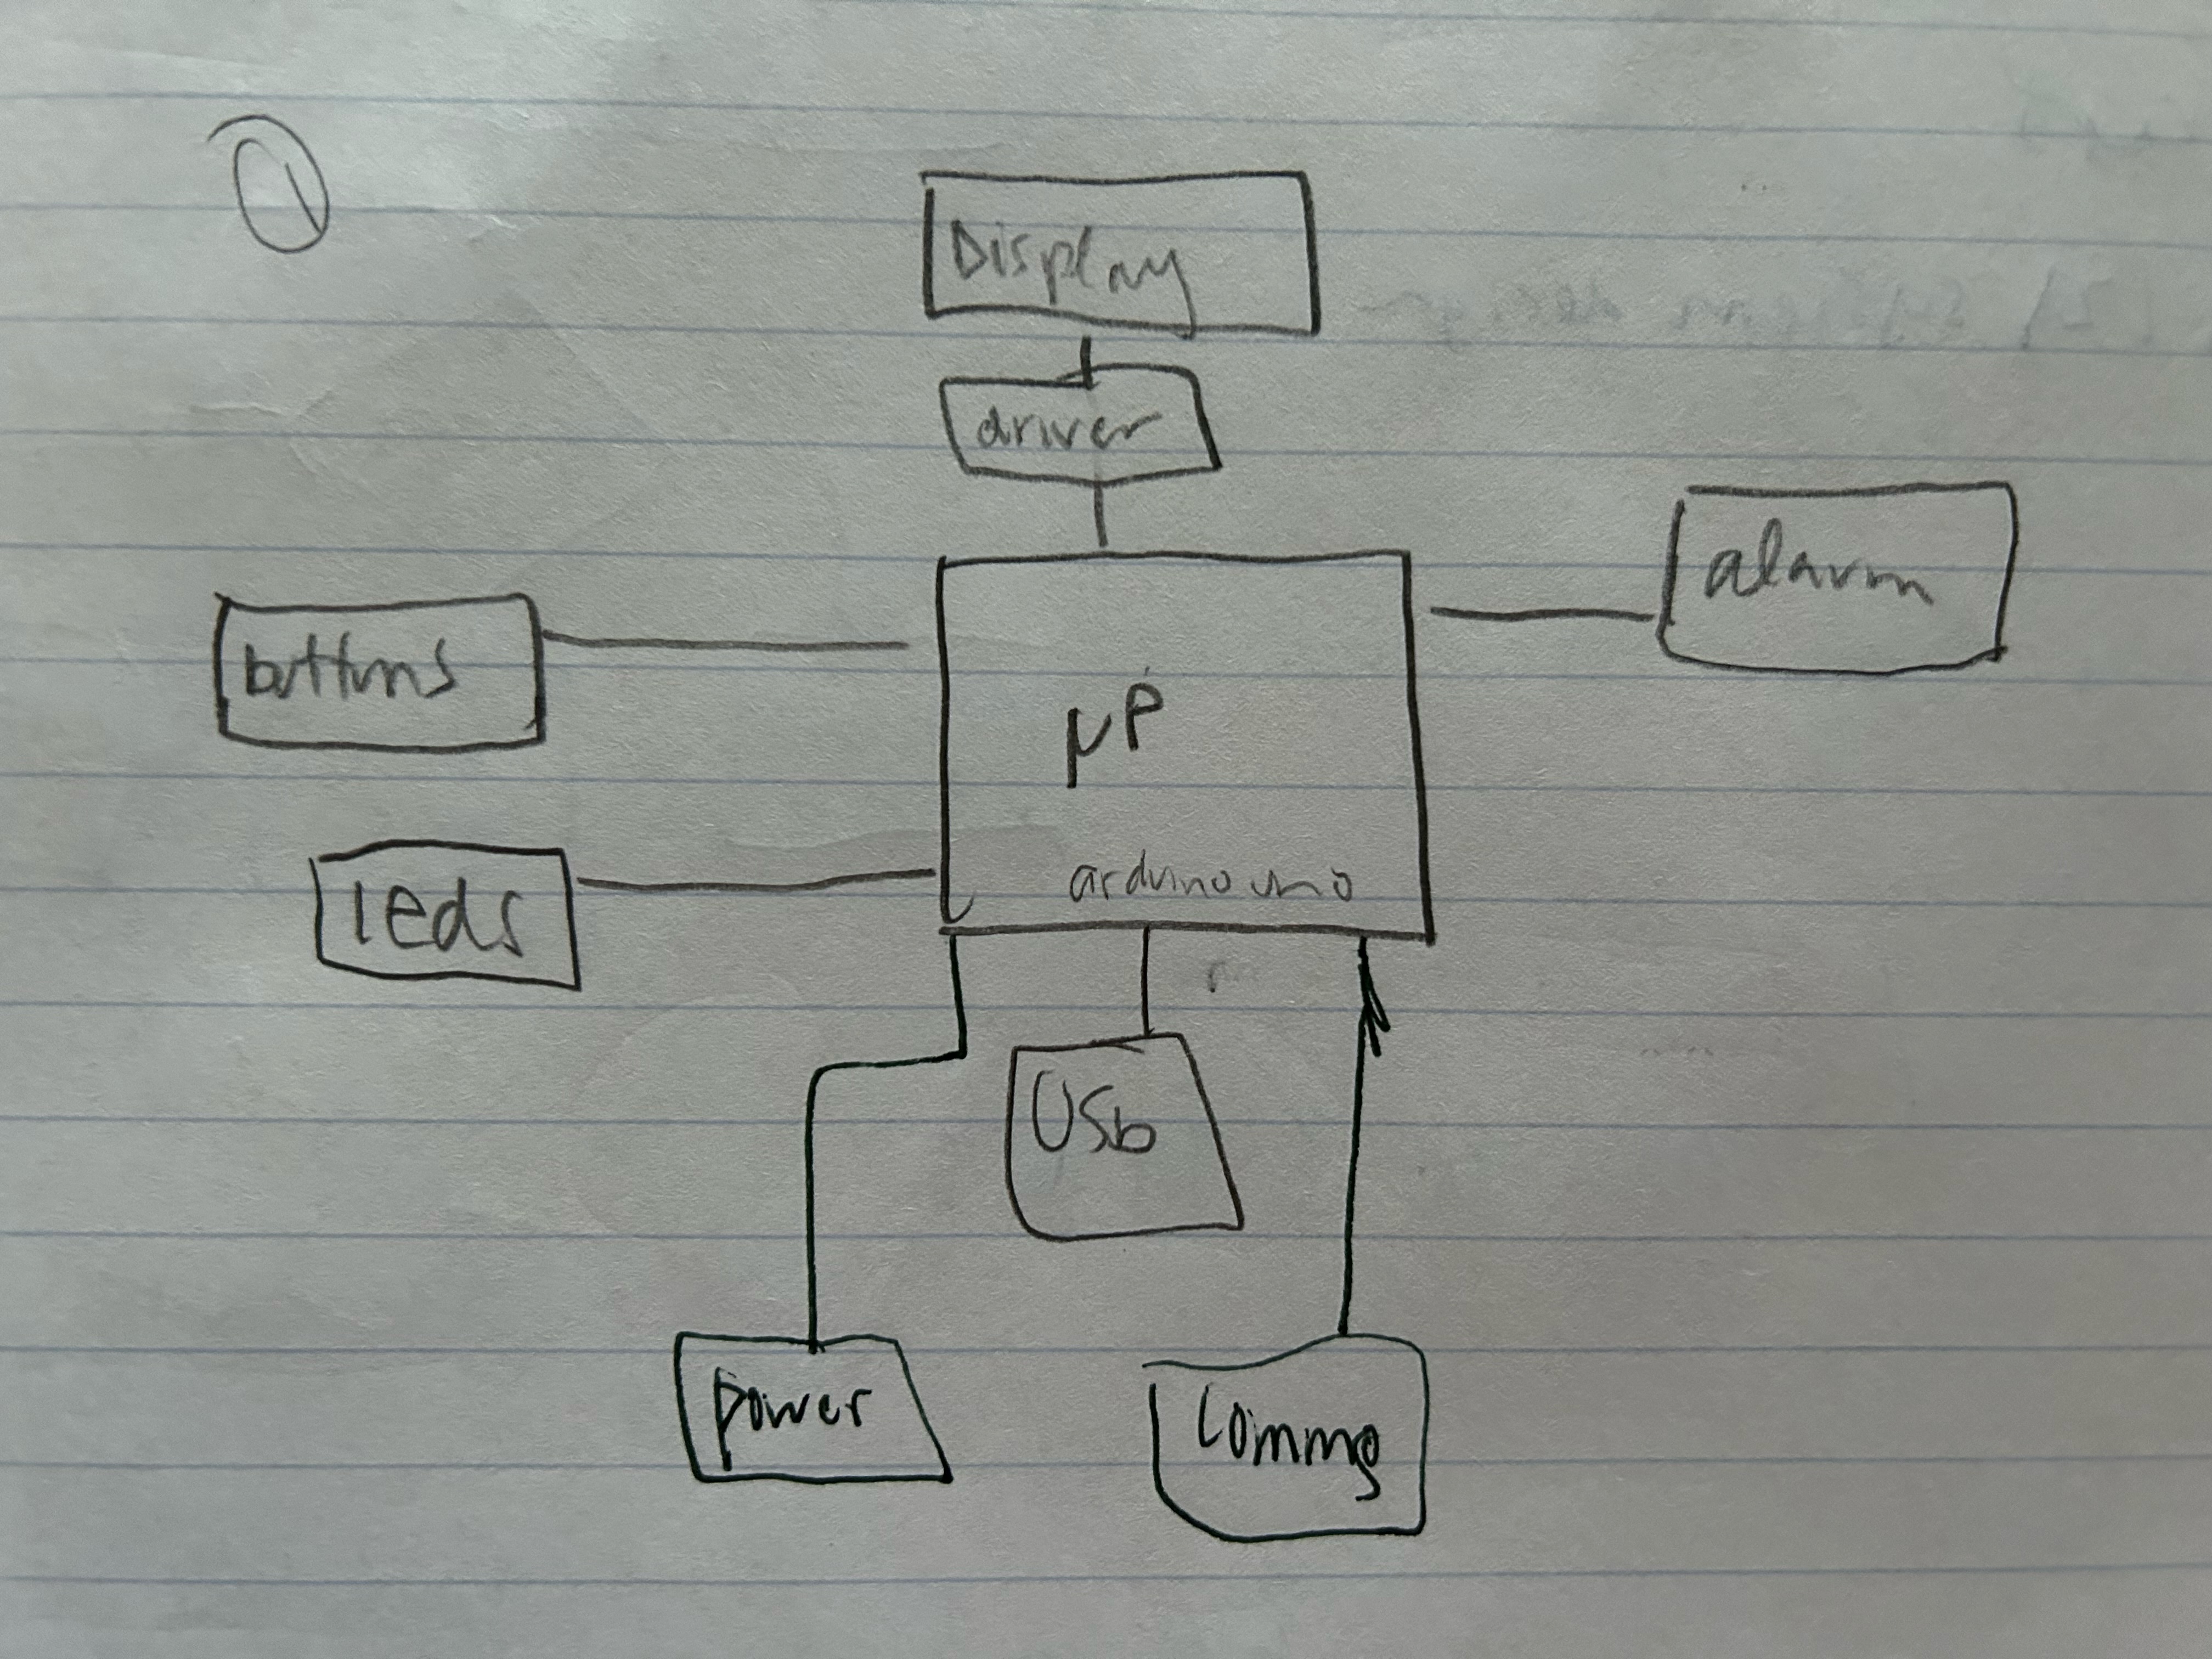 1
Display
driver
alarm
buttons
μP
leds
arduino uno
USb
power
Comms